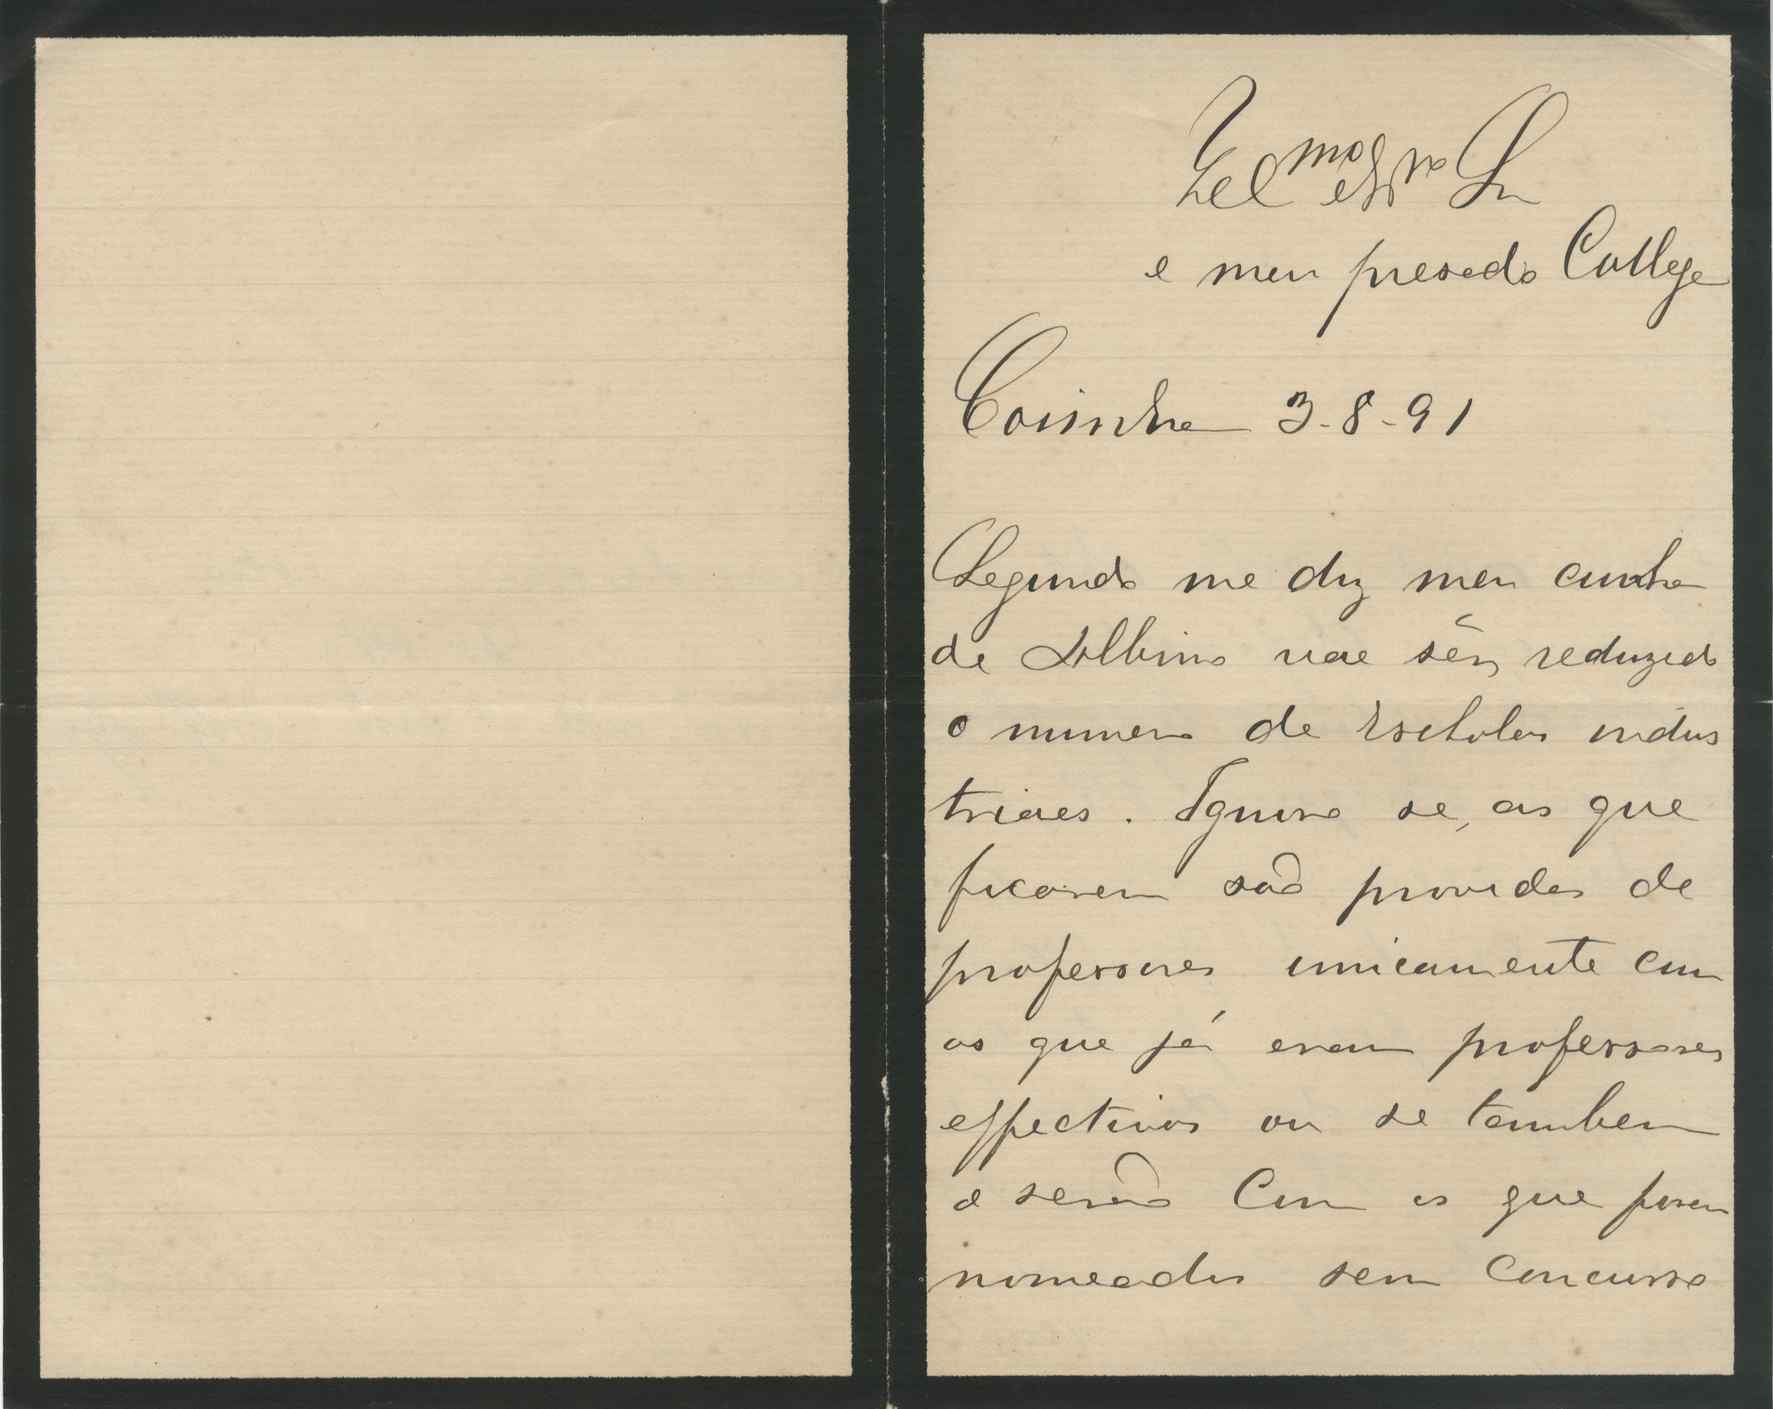 Ex.mo Sr.
e meu presado Collega
Coimbra 3-8-91
Segundo me diz meu cunha
do Albino vae sêr reduzido
o numero de Escholas indus
triaes. Ignoro se, as que
ficarem são providas de
professores unicamente com
os que já eram professores
effectivos ou se tambem
o serão com os que foram
nomeados sem concurso